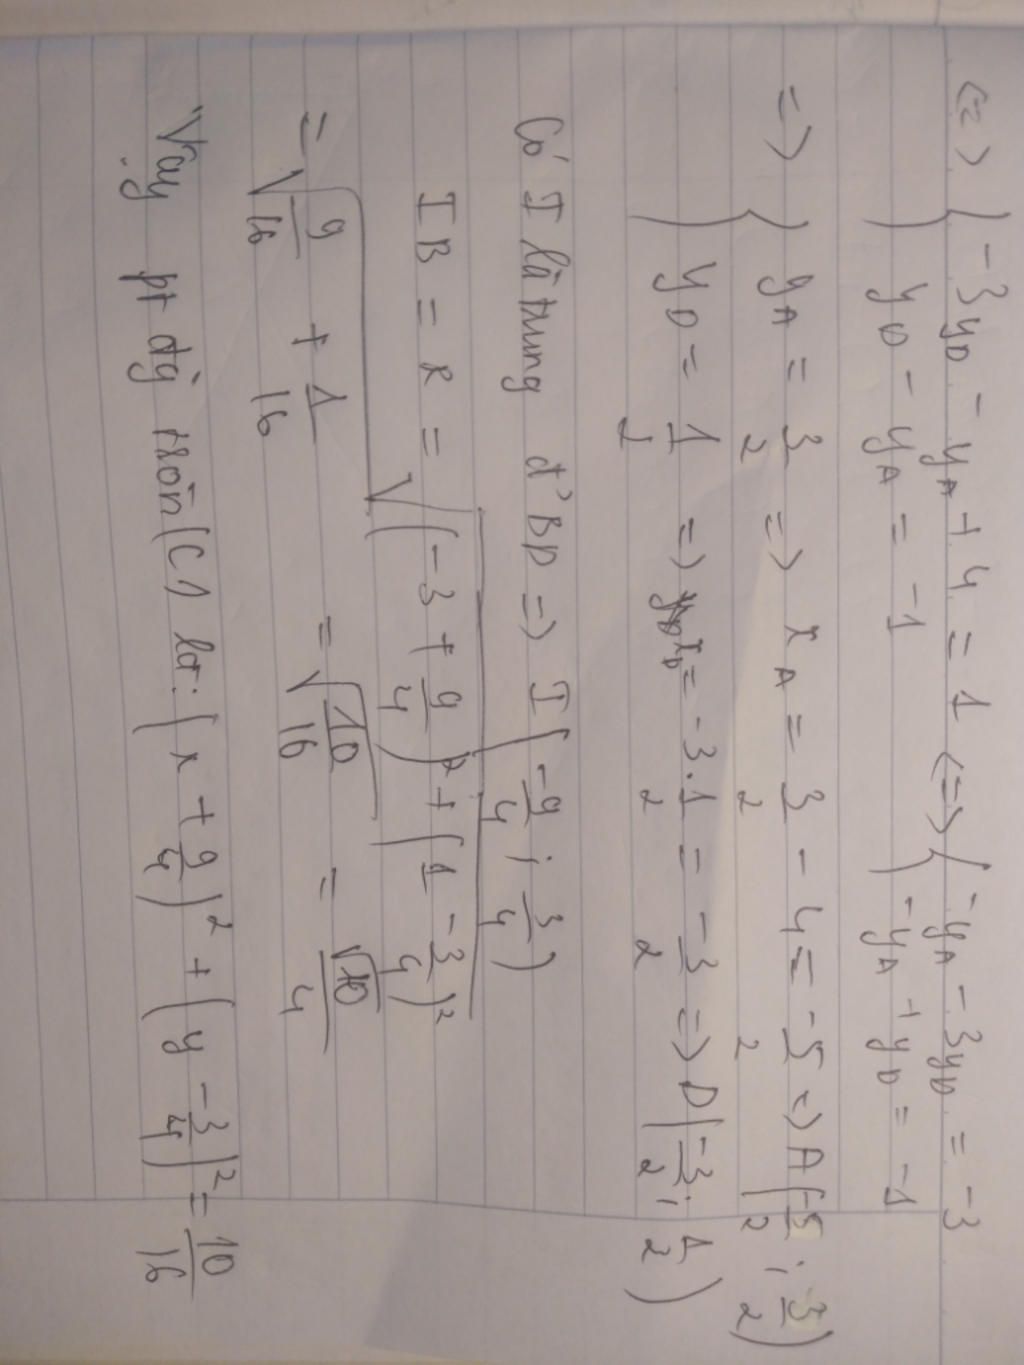 <=> { -3y_D - y_A + 4 = 1 <=> { -y_A - 3y_D = -3
y_D - y_A = -1 -y_A + y_D = -1
=> { y_A = 3/2 => x_A = 3/2 - 4 = -5/2 => A(-5/2; 3/2)
y_D = 1/2 => x_D = -3.1/2 = -3/2 => D(-3/2; 1/2)
Có I là trung đ' BD => I(-9/4; 3/4)
IB = R = √((-3 + 9/4)² + (1 - 3/4)²)
= √(9/16 + 1/16) = √(10/16) = √10/4
Vậy pt đg tròn (C) là: (x + 9/4)² + (y - 3/4)² = 10/16